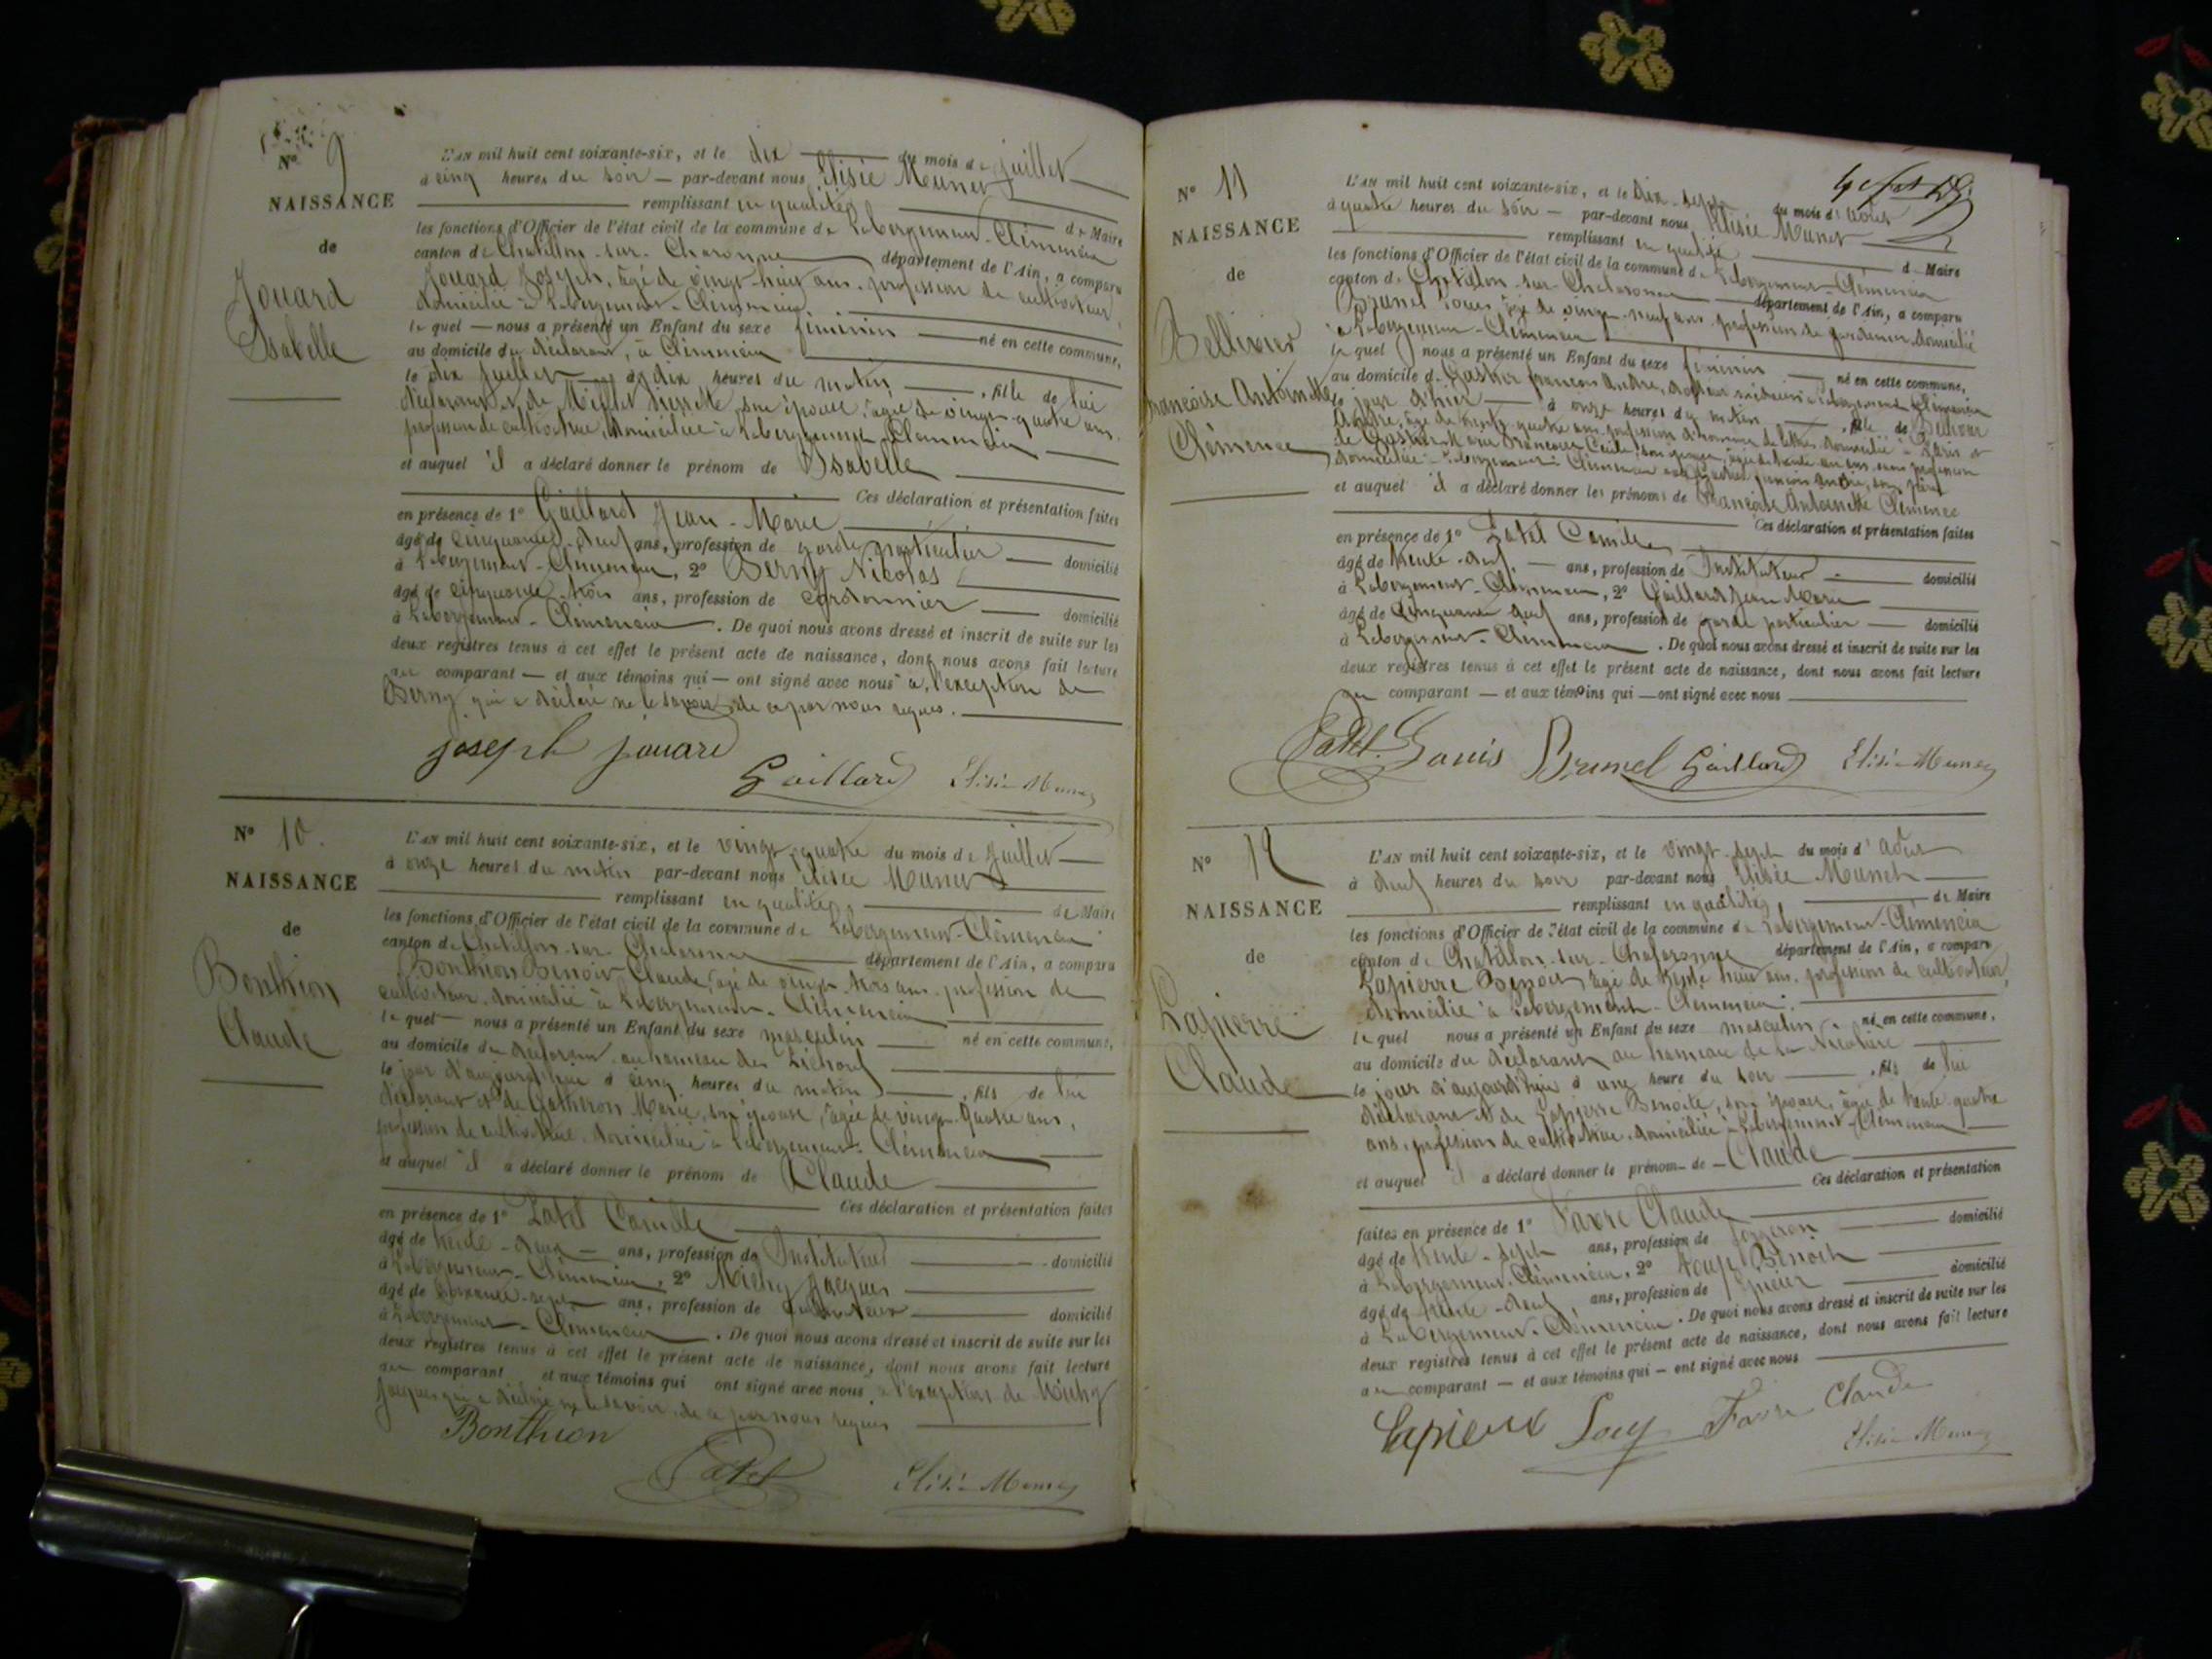 N° 9
NAISSANCE
de
Jouard
Isabelle
L'AN mil huit cent soixante-six, et le dix du mois de juillet
à cinq heures du soir par-devant nous Elisée Meunet
remplissant en qualité de Maire
les fonctions d'Officier de l'état civil de la commune de Labergement-Clémencia
canton de Chatillon-sur-Chalaronne département de l'Ain, a comparu
Jouard Joseph, âgé de vingt-huit ans, profession de cultivateur,
domicilié à Labergement-Clémencia
lequel nous a présenté un Enfant du sexe féminin né en cette commune,
au domicile du déclarant, à Clémencia
le dix juillet à dix heures du matin, fille de lui
déclarant et de son épouse, âgée de vingt-quatre ans,
profession de cultivatrice, domiciliée à Labergement-Clémencia
et auquel il a déclaré donner le prénom de Isabelle
Ces déclaration et présentation faites
en présence de 1° Gaillard Jean-Marie
âgé de cinquante-neuf ans, profession de garde particulier domicilié
à Labergement-Clémencia, 2° Berny Nicolas
âgé de cinquante-trois ans, profession de cordonnier domicilié
à Labergement-Clémencia. De quoi nous avons dressé et inscrit de suite sur les
deux registres tenus à cet effet le présent acte de naissance, dont nous avons fait lecture
au comparant et aux témoins qui ont signé avec nous à l'exception de
Berny qui a déclaré ne le savoir de ce par nous requis.
joseph jouard
Gaillard Elisée Meunet
N° 10.
NAISSANCE
de
Bonthion
Claude
L'AN mil huit cent soixante-six, et le vingt-quatre du mois de Juillet
à onze heures du matin par-devant nous Elisée Meunet
remplissant en qualité de Maire
les fonctions d'Officier de l'état civil de la commune de Labergement-Clémencia
canton de Chatillon-sur-Chalaronne département de l'Ain, a comparu
Bonthion Benoit Claude, âgé de vingt-trois ans, profession de
cultivateur, domicilié à Labergement-Clémencia
lequel nous a présenté un Enfant du sexe masculin né en cette commune,
au domicile du déclarant au hameau des
le jour d'aujourd'hui à cinq heures du matin, fils de lui
déclarant et de Marie, son épouse, âgée de vingt-quatre ans,
profession de cultivatrice, domiciliée à Labergement-Clémencia
et auquel il a déclaré donner le prénom de Claude
Ces déclaration et présentation faites
en présence de 1° Patel Camille
âgé de trente-deux ans, profession de Instituteur domicilié
à Labergement-Clémencia, 2° Michy Jacques
âgé de soixante-sept ans, profession de cultivateur domicilié
à Labergement-Clémencia. De quoi nous avons dressé et inscrit de suite sur les
deux registres tenus à cet effet le présent acte de naissance, dont nous avons fait lecture
au comparant et aux témoins qui ont signé avec nous à l'exception de Michy
Jacques qui a déclaré ne le savoir, de ce par nous requis
Bonthion
Patel Elisée Meunet
N° 11
NAISSANCE
de
Bellivier
Françoise Antoinette
Clémence
L'AN mil huit cent soixante-six, et le dix-sept du mois d'août
à quatre heures du soir par-devant nous Elisée Meunet
remplissant en qualité de Maire
les fonctions d'Officier de l'état civil de la commune de Labergement-Clémencia
canton de Chatillon-sur-Chalaronne département de l'Ain, a comparu
Brunel Louis, âgé de vingt-neuf ans, profession de jardinier, domicilié
à Labergement-Clémencia
lequel nous a présenté un Enfant du sexe féminin né en cette commune,
au domicile de françois André, docteur médecin à Labergement-Clémencia
le jour d'hier à onze heures du matin, fille de
André, âgé de trente-quatre ans, profession d'homme de lettres, domicilié à Paris et
de Françoise Cécile, son épouse, âgée de trente ans, sans profession
domiciliée à Labergement-Clémencia françois André, son père
et auquel il a déclaré donner les prénoms de Françoise Antoinette Clémence
Ces déclaration et présentation faites
en présence de 1° Patel Camille
âgé de trente-deux ans, profession de Instituteur domicilié
à Labergement-Clémencia, 2° Gaillard Jean Marie
âgé de cinquante-neuf ans, profession de garde particulier domicilié
à Labergement-Clémencia. De quoi nous avons dressé et inscrit de suite sur les
deux registres tenus à cet effet le présent acte de naissance, dont nous avons fait lecture
au comparant et aux témoins qui ont signé avec nous
Patel Louis Brunel Gaillard Elisée Meunet
N° 12
NAISSANCE
de
Lapierre
Claude
L'AN mil huit cent soixante-six, et le vingt-sept du mois d'août
à neuf heures du soir par-devant nous Elisée Meunet
remplissant en qualité de Maire
les fonctions d'Officier de l'état civil de la commune de Labergement-Clémencia
canton de Chatillon-sur-Chalaronne département de l'Ain, a comparu
Lapierre Benoit âgé de trente-huit ans, profession de cultivateur,
domicilié à Labergement-Clémencia.
lequel nous a présenté un Enfant du sexe masculin né en cette commune,
au domicile du déclarant au hameau de la
le jour d'aujourd'hui à une heure du soir, fils de lui
déclarant et de Lapierre Benoite, son épouse, âgée de trente-quatre
ans, profession de cultivatrice, domiciliée à Labergement-Clémencia
et auquel il a déclaré donner le prénom de Claude
Ces déclaration et présentation
faites en présence de 1° Favre Claude
âgé de trente-sept ans, profession de forgeron domicilié
à Labergement-Clémencia, 2° Benoit
âgé de trente-neuf ans, profession de épicier domicilié
à Labergement-Clémencia. De quoi nous avons dressé et inscrit de suite sur les
deux registres tenus à cet effet le présent acte de naissance, dont nous avons fait lecture
au comparant et aux témoins qui ont signé avec nous
Lapierre Favre Claude
Elisée Meunet